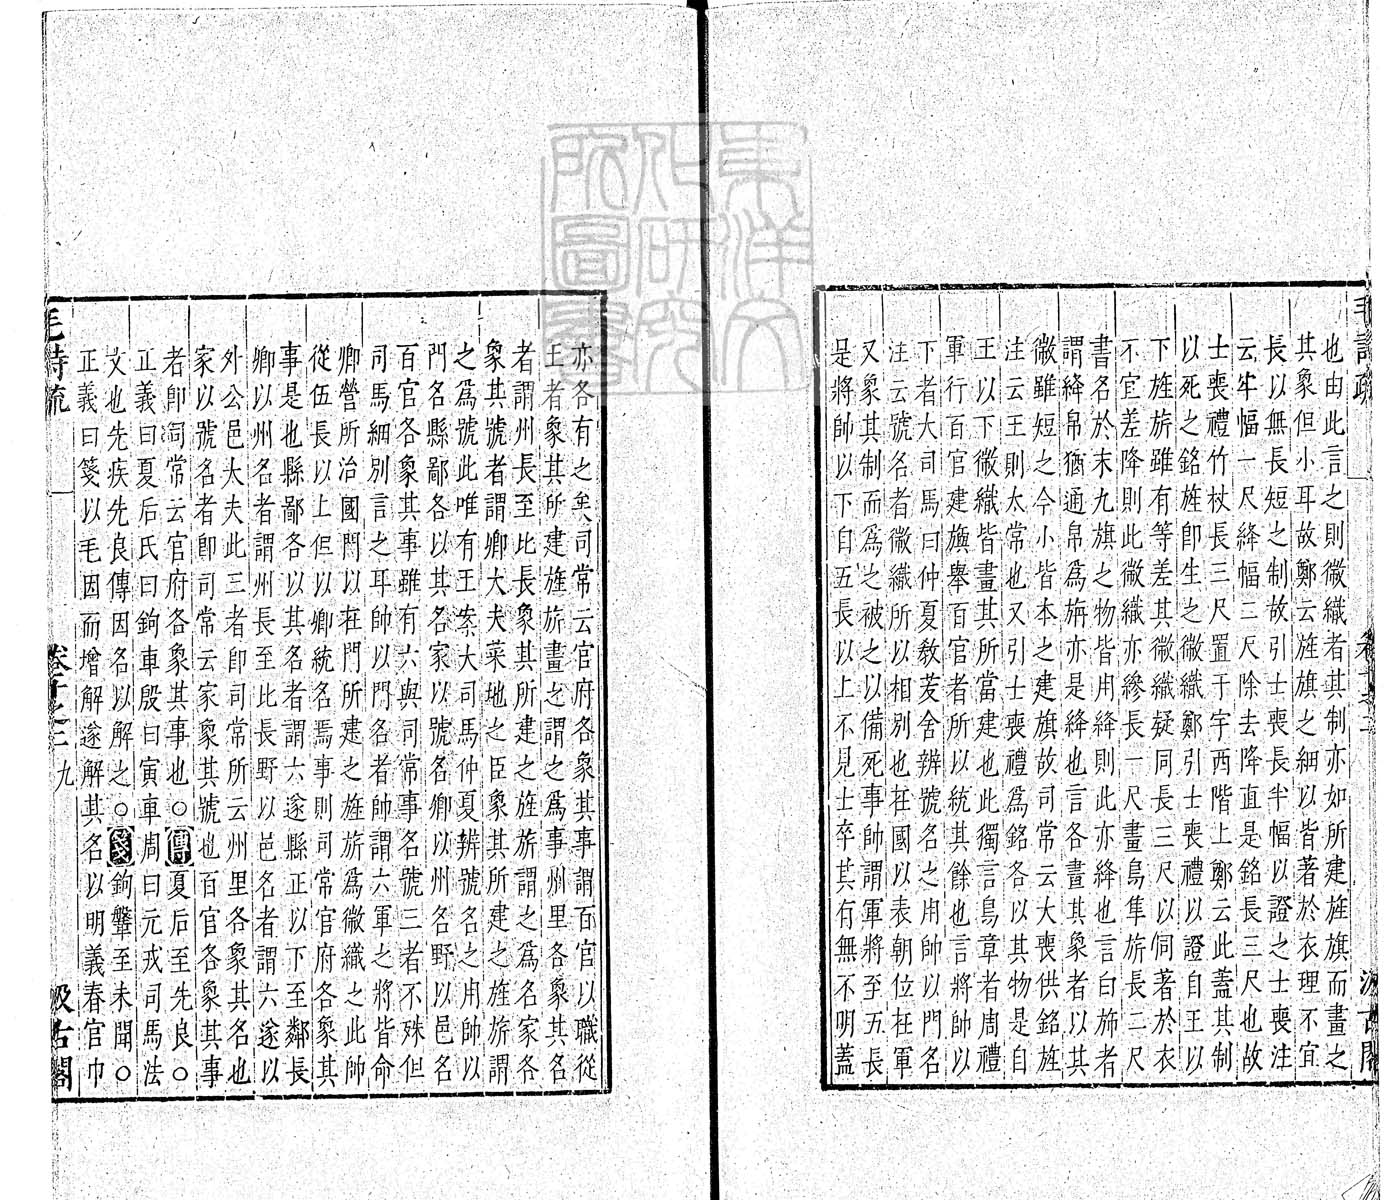 也由此言之則徽織者其制亦如所建旌旗而畫之
其象但小耳故鄭云旌旗之細以皆著於衣理不宜
長以無長短之制故引士喪長半幅以證之士喪注
云半幅一尺絳幅三尺除去降直是銘長三尺也故
士喪禮竹杖長三尺置于宇西階上鄭云此蓋其制
以死之銘旌卽生之徽織鄭引士喪禮以證自王以
下旌旂雖有等差其徽織疑同長三尺以伺著於衣
不宜差降則此徽織亦縿長一尺畫鳥隼旂長二尺
書名於末九旗之物皆用絳則此亦絳也言白斾者
謂絳帛猶通帛爲旃亦是絳也言各畫其象者以其
徽雖短之今小皆本之建旗故司常云大喪供銘旌
注云王則太常也又引士喪禮爲銘各以其物是自
王以下徽織皆畫其所當建也此獨言鳥章者周禮
軍行百官建旟舉百官者所以統其餘也言將帥以
下者大司馬曰仲夏敎茇舍辨號名之用帥以門名
注云號名者徽織所以相別也在國以表朝位在軍
又象其制而爲之被之以備死事帥謂軍將至五長
是將帥以下自五長以上不見士卒其有無不明蓋
毛詩疏
汲古閣
亦各有之矣司常云官府各象其事謂百官以職從
王者象其所建旌旂畫之謂之爲事州里各象其名
者謂州長至比長象其所建之旌旂謂之爲名家各
象其號者謂卿大夫菜地之臣象其所建之旌旂謂
之爲號此唯有王案大司馬仲夏辨號名之用帥以
門名縣鄙各以其名家以號名卿以州名野以邑名
百官各象其事雖有六與司常事名號三者不殊但
司馬細別言之耳帥以門名者帥謂六軍之將皆命
卿營所治國門以在門所建之旌旂爲徽織之此帥
從伍長以上但以卿統名焉事則司常官府各象其
事是也縣鄙各以其名者謂六遂縣正以下至鄰長
卿以州名者謂州長至比長野以邑名者謂六遂以
外公邑大夫此三者卽司常所云州里各象其名也
家以號名者卽司常云家象其號也百官各象其事
者卽司常云官府各象其事也○傳夏后至先良○
正義曰夏后氏曰鉤車殷曰寅車周曰元戎司馬法
文也先疾先良傳因名以解之○箋鉤鞶至未聞○
正義曰箋以毛因而增解遂解其名以明義春官巾
毛詩疏 卷十之二 九 汲古閣
東洋文化研究所圖書